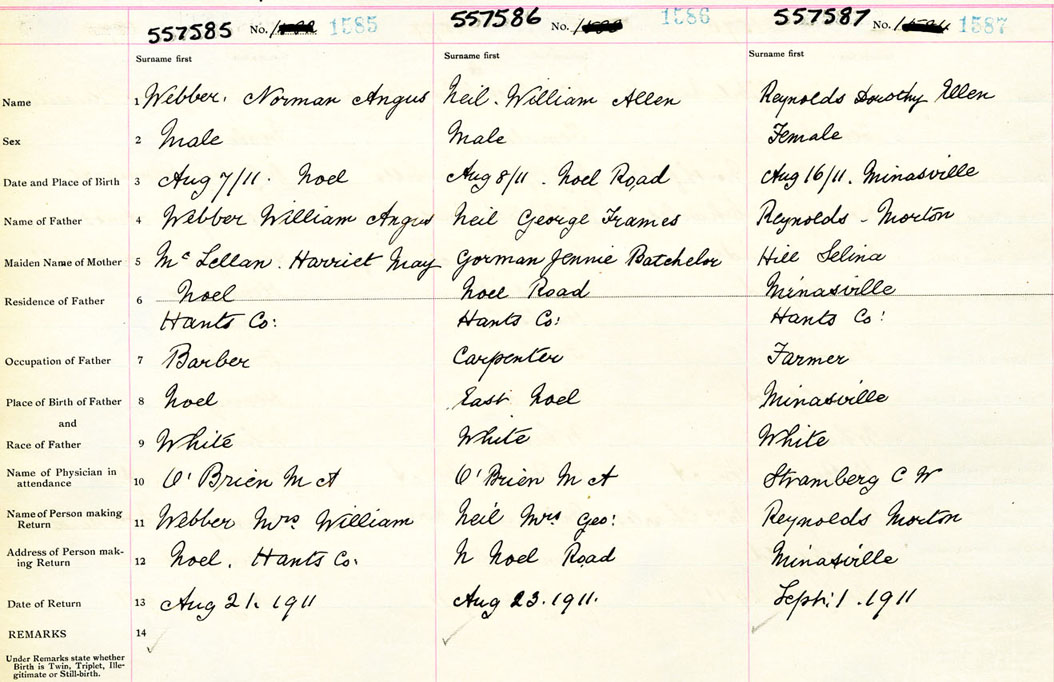 557585 No. 1585 557586 No. 1586 557587 No. 1587
Surname first Surname first Surname first
Name 1 Webber. Norman Angus Neil. William Allen Reynolds Dorothy Ellen
Sex 2 Male Male Female
Date and Place of Birth 3 Aug 7/11. Noel Aug 8/11. Noel Road Aug 16/11. Minasville
Name of Father 4 Webber William Angus Neil George Frames Reynolds - Morton
Maiden Name of Mother 5 Mc Lellan. Harriet May Gorman Jennie Batchelor Hill Selina
Residence of Father 6 Noel Noel Road Minasville
Hants Co: Hants Co: Hants Co:
Occupation of Father 7 Barber Carpenter Farmer
Place of Birth of Father 8 Noel East Noel Minasville
and
Race of Father 9 White White White
Name of Physician in
attendance 10 O'Brien M A O'Brien M A Stramberg C W
Name of Person making
Return 11 Webber Mrs William Neil Mrs Geo: Reynolds Morton
Address of Person mak-
ing Return 12 Noel. Hants Co. N Noel Road Minasville
Date of Return 13 Aug 21. 1911 Aug 23. 1911. Sept. 1. 1911
REMARKS 14
Under Remarks state whether
Birth is Twin, Triplet, Ille-
gitimate or Still-birth.